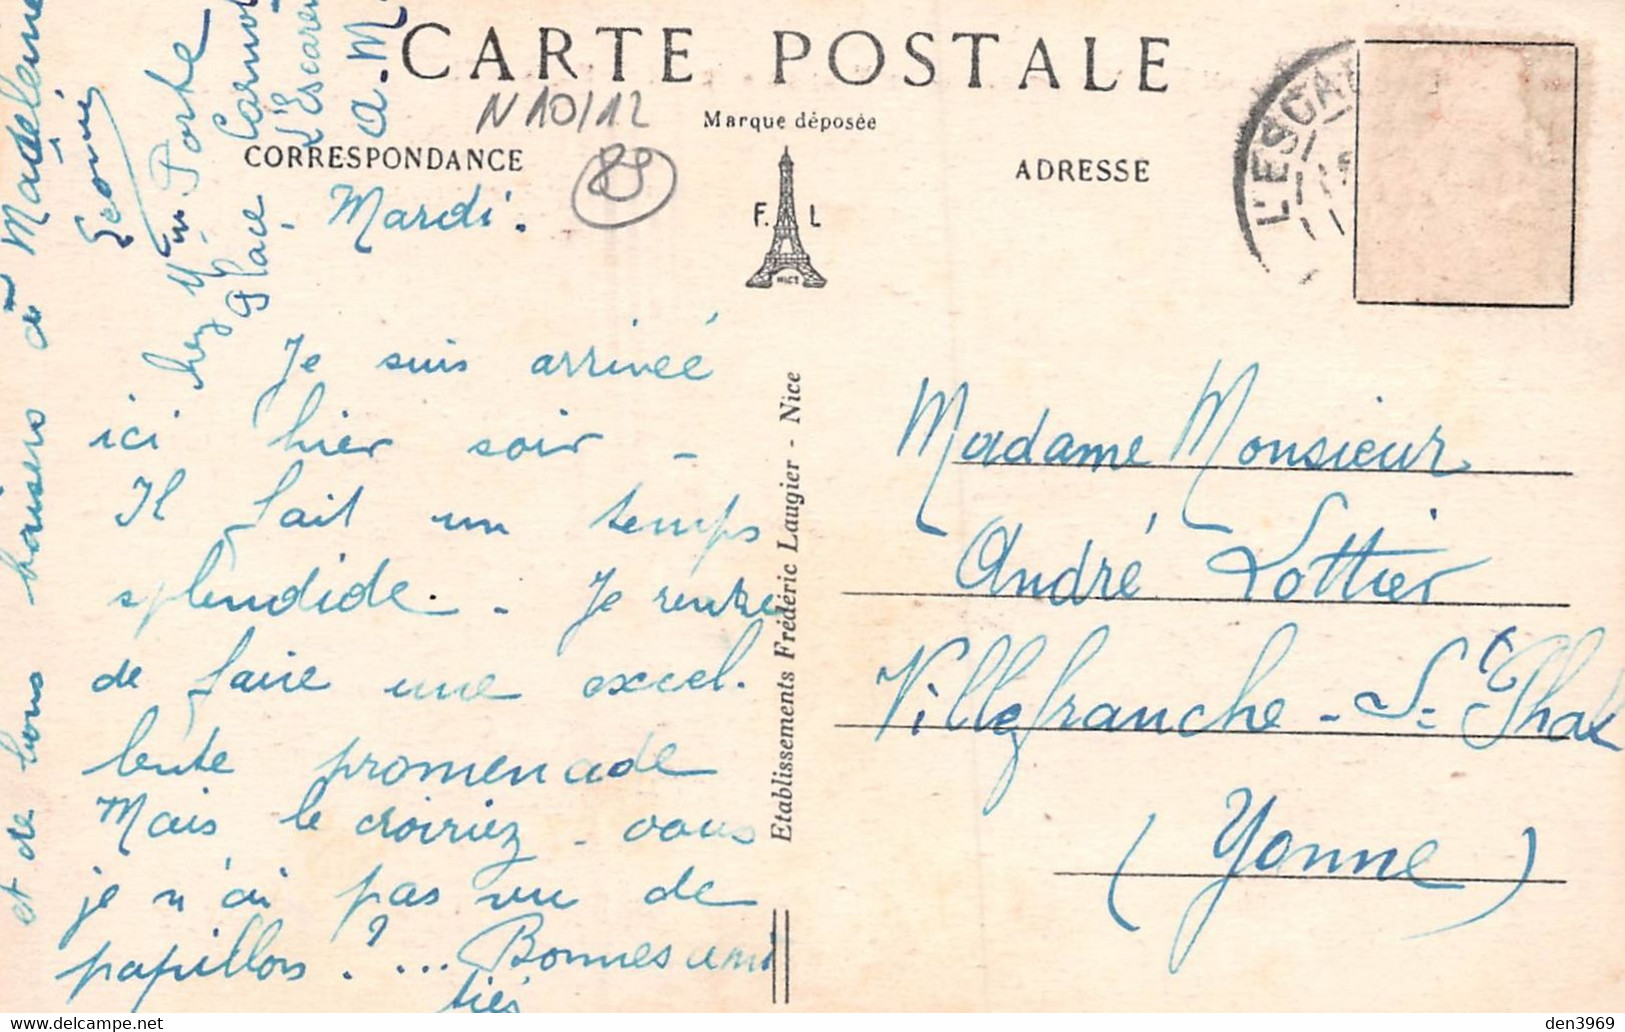 CARTE POSTALE
N 10/12
Marque déposée
CORRESPONDANCE
89
ADRESSE
F. L
NICE
L'ESCA
Mardi.
Je suis arrivée
ici hier soir -
Il fait un temps
splendide. - Je rentre
de faire une excel.
lente promenade
Mais le croiriez - vous
je n'ai pas vu de
papillons ? ... Bonnes ami
tiés
et de bons baisers à Madeleine
Ecrivé
chez Mme Porte
Place Carnot
L'Escarène
a. M.
Etablissements Frédéric Laugier - Nice
Madame Monsieur
André Lottier
Villefranche - St Phal
(Yonne)
den3969